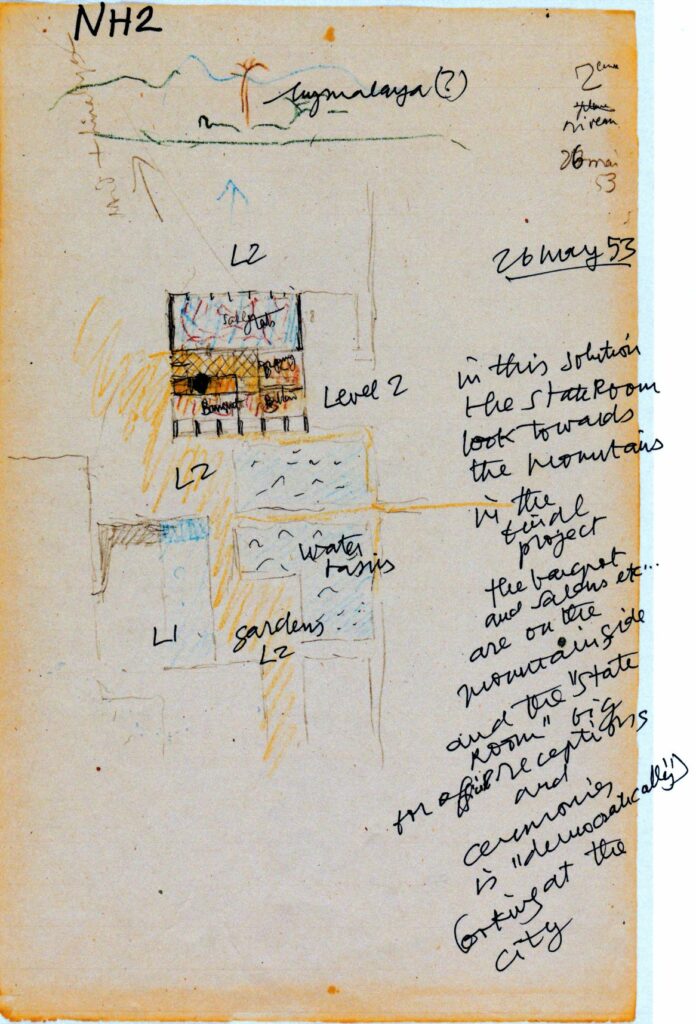 NH2
Hymalaya(?)
2ème
niveau
26 mai
53
26 may 53
L2
Level 2
Banquet
L2
water
basins
L1
gardens
L2
in this solution
the state Room
look towards
the mountains
in the
final
project
the banquet
and salons etc...
are on the
mountain side
and the "state
Room" big
for official receptions
and
ceremonies
is "democratically"
looking at the
city